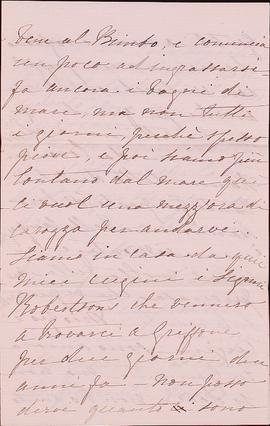 bene al Bimbo, e comincia
un poco ad ingrassarsi
fa ancora i bagni di
mare, ma non tutti
i giorni, perchè spesso
piove, e poi siamo più
lontano dal mare qui
ci vuol una mezz'ora di
carozza per andarvi.
Siamo in casa da quei
miei cugini i Signori
Robertson che vennero
a trovarci a Griffone
per due giorni due
anni fa – non posso
dirvi quanto sono